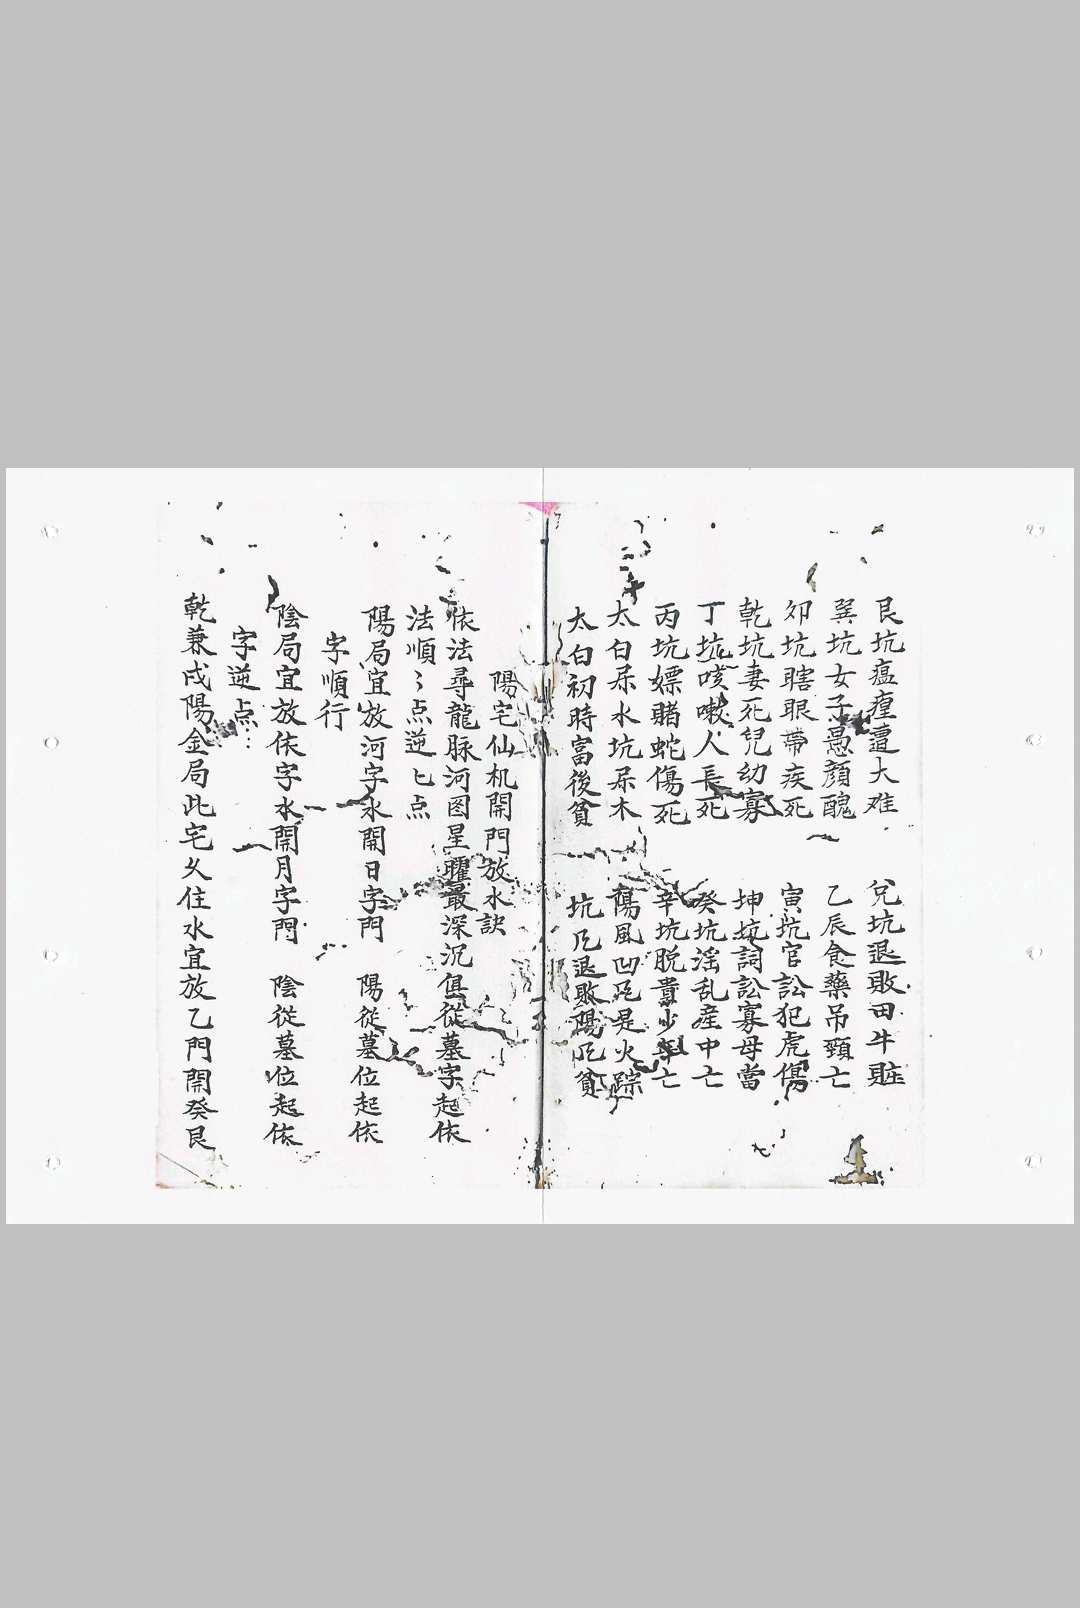 艮坑瘟瘴遭大难　兌坑退敗田牛賍
巽坑女子愚顏醜　乙辰食藥吊頸亡
夘坑瞎眼帶疾死　寅坑官訟犯虎傷
乾坑妻死兒幼寡　坤坑詞訟寡母當
丁坑咳嗽人長死　癸坑滛乱産中亡
丙坑嫖賭蛇傷死　辛坑脱貴少年亡
太白屎水坑屎木　陽風凹凥是火踪
太白初時富後貧　坑凥退敗陽凥貧
陽宅仙机開門放水訣
依法尋龍脉河图星曜最深沉俱從墓字起依
法順〻点逆匕点
陽局宜放河字水開日字門　陽從墓位起依
字順行
陰局宜放依字水開月字門　陰從墓位起依
字逆点
乾兼戌陽金局此宅久住水宜放乙門開癸艮